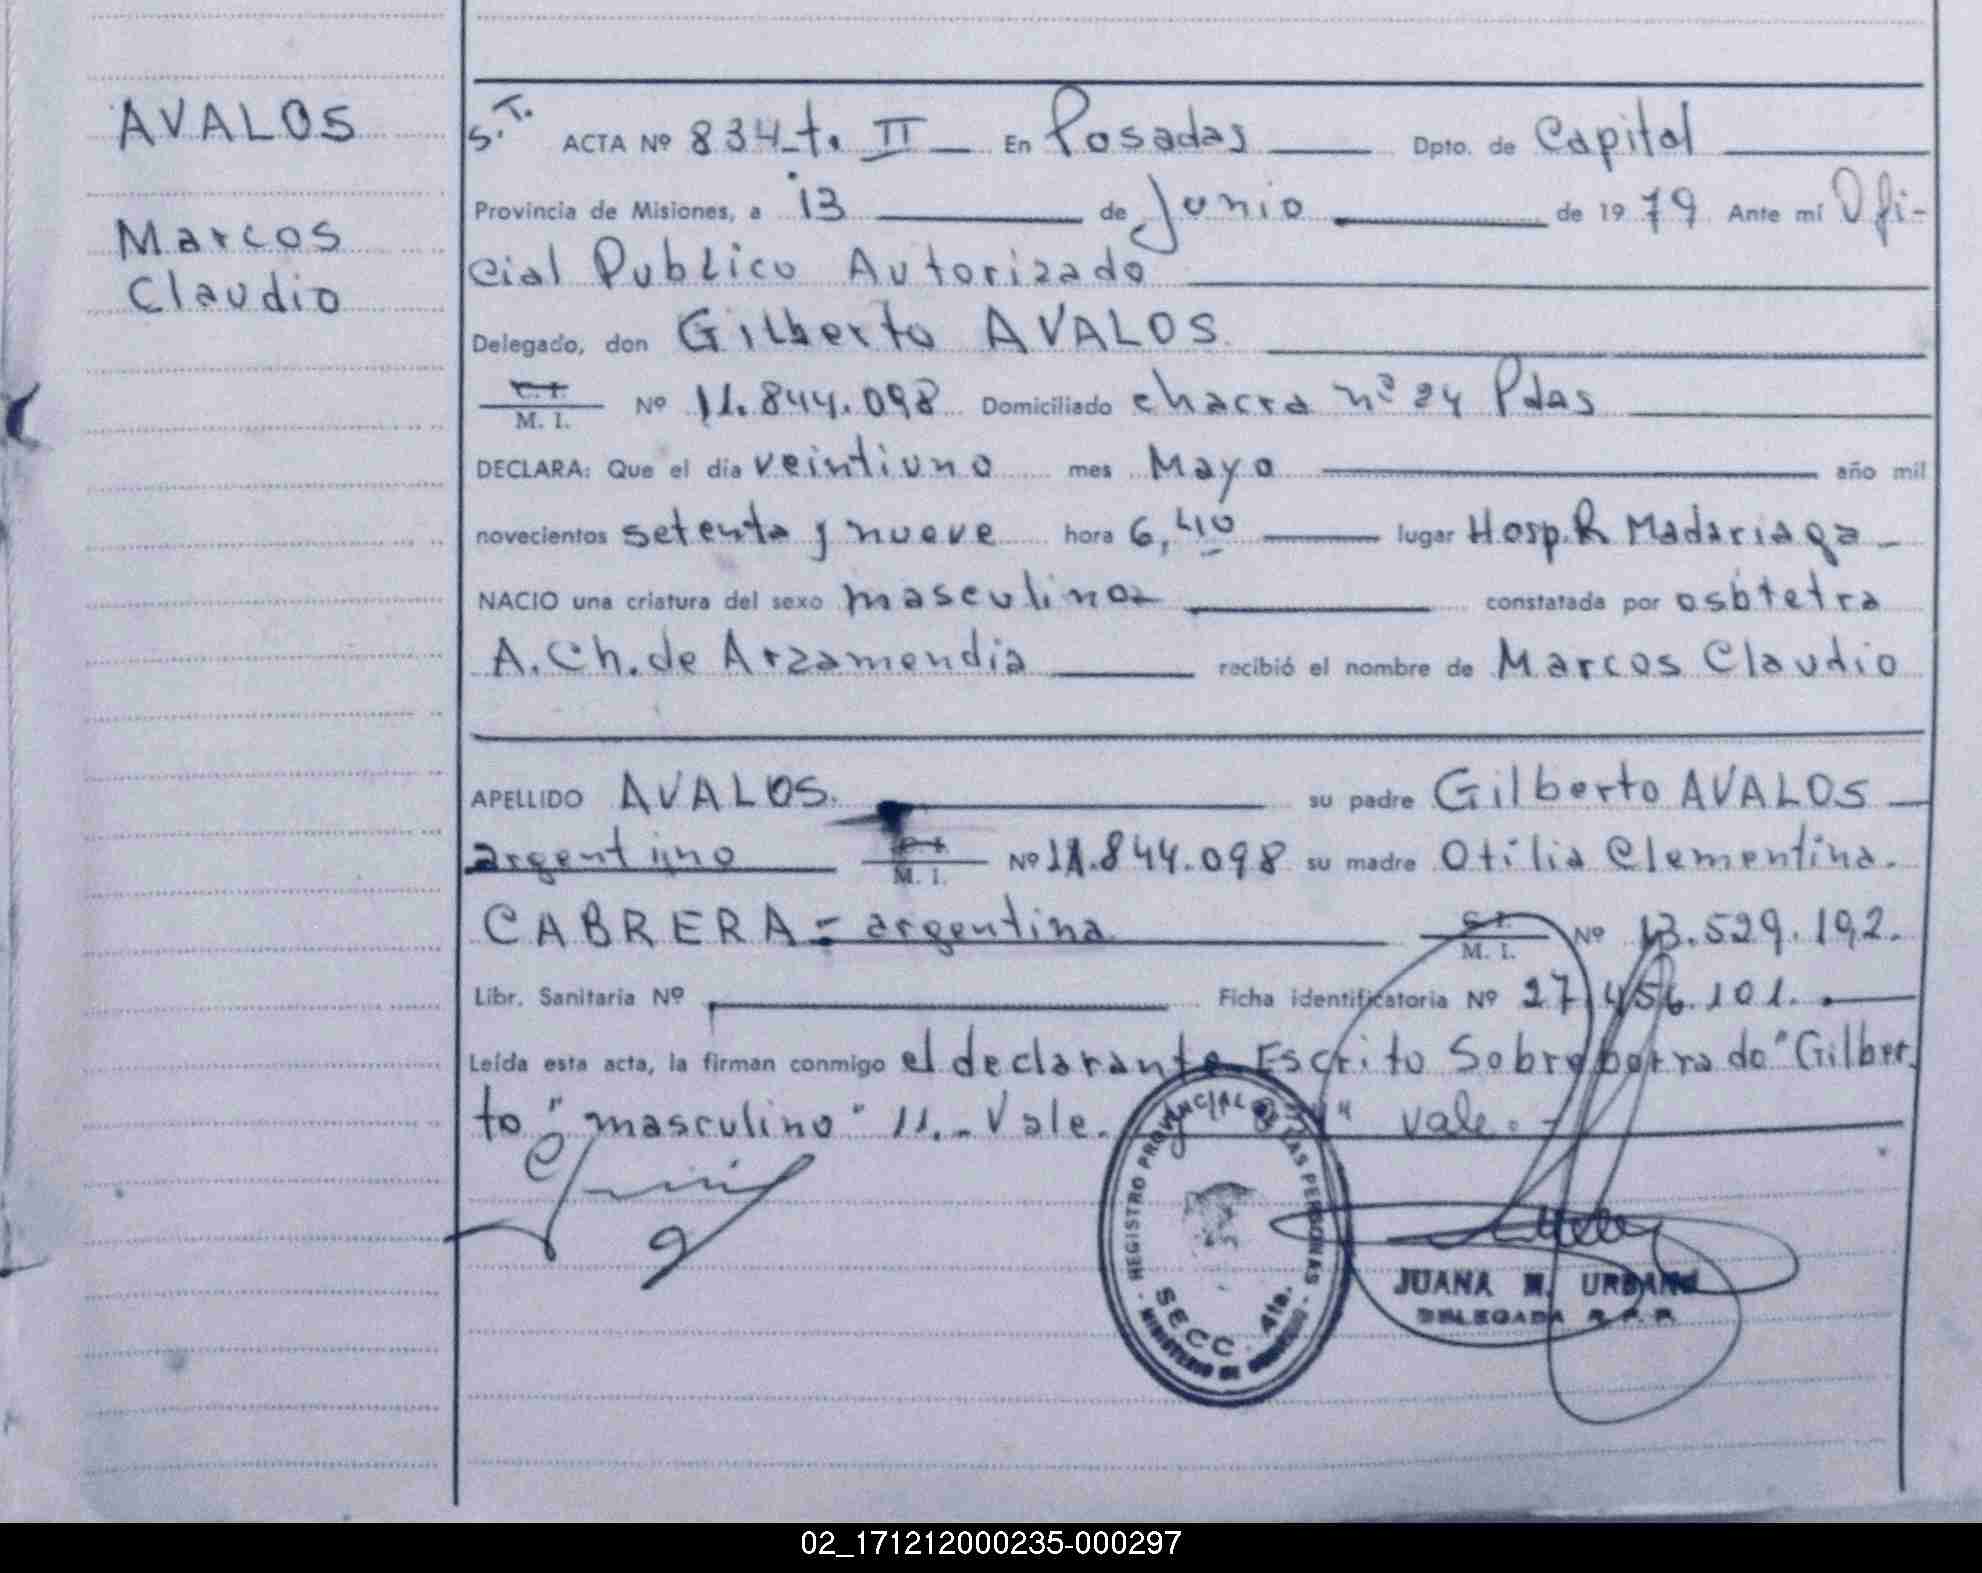 AVALOS
Marcos
Claudio
S.T. ACTA Nº 834 t. II En Posadas Dpto. de Capital
Provincia de Misiones, a 13 de Junio de 1979 Ante mí Ofi-
cial Publico Autorizado
Delegado, don Gilberto AVALOS.
C. I.
M. I. Nº 11.844.098 Domiciliado chacra nº 24 Pdas
DECLARA: Que el día veintiuno mes Mayo año mil
novecientos setenta y nueve hora 6,40 lugar Hosp. R Madariaga
NACIO una criatura del sexo masculino constatada por osbtetra
A. Ch. de Arzamendia recibió el nombre de Marcos Claudio
APELLIDO AVALOS. su padre Gilberto AVALOS
argentino C. I. M. I. Nº 11.844.098 su madre Otilia Clementina.
CABRERA = argentina C. I. M. I. Nº 13.529.192.
Libr. Sanitaria Nº Ficha identificatoria Nº 27.456.101.
Leída esta acta, la firman conmigo el declarante Escrito Sobre borrado "Gilber
to" "masculino" 11.- Vale. vale.-
REGISTRO PROVINCIAL DE LAS PERSONAS
SECC. 4ta.
MINISTERIO DE GOBIERNO
JUANA M. URBANO
DELEGADA R. P. P.
02_171212000235-000297